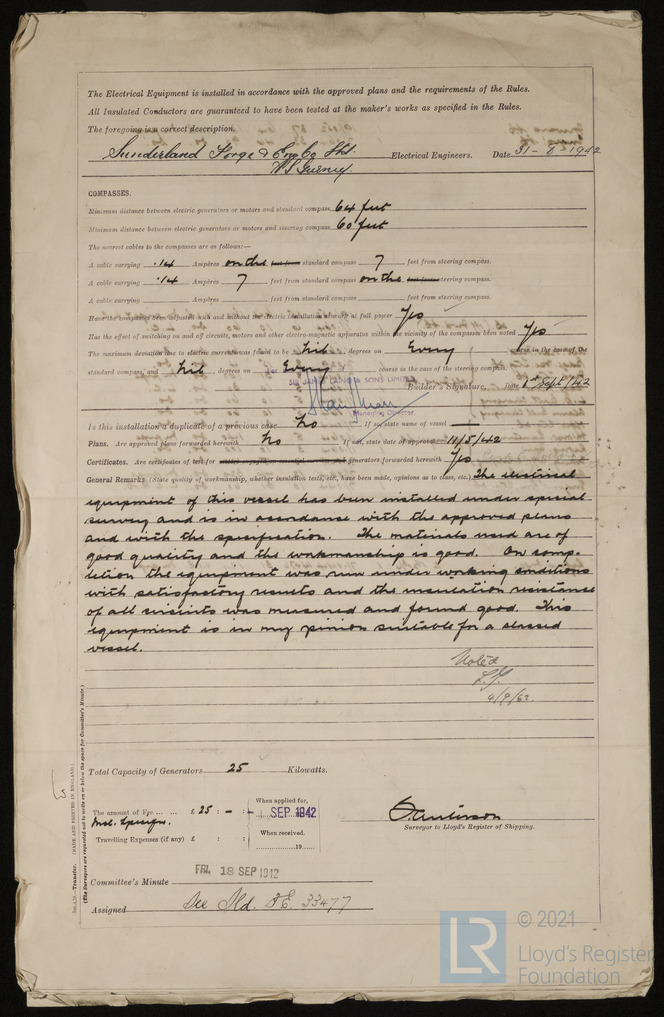 The Electrical Equipment is installed in accordance with the approved plans and the requirements of the Rules.
All Insulated Conductors are guaranteed to have been tested at the maker's works as specified in the Rules.
The foregoing is a correct description.
Sunderland Forge & Eng Co Ltd Electrical Engineers. Date 31-8-1942
COMPASSES.
Minimum distance between electric generators or motors and standard compass 64 feet
Minimum distance between electric generators or motors and steering compass 60 feet
The nearest cables to the compasses are as follows:—
A cable carrying .14 Ampères on the feet from standard compass 7 feet from steering compass.
A cable carrying .14 Ampères 7 feet from standard compass on the feet from steering compass.
A cable carrying Ampères feet from standard compass feet from steering compass.
Have the compasses been adjusted with and without the electric installation at work at full power Yes
Has the effect of switching on and off circuits, motors and other electro-magnetic apparatus within the vicinity of the compasses been noted Yes
The maximum deviation due to electric currents was found to be Nil degrees on Every course in the case of the
standard compass, and Nil degrees on Every course in the case of the steering compass.
SIR JAMES LAING & SONS LIMITED
Builder's Signature. Date 1st Sept/42
Managing Director.
Is this installation a duplicate of a previous case No If so, state name of vessel —
Plans. Are approved plans forwarded herewith No If not, state date of approval 11/5/42
Certificates. Are certificates of test for generators forwarded herewith Yes
General Remarks (State quality of workmanship, whether insulation tests, etc., have been made, opinions as to class, etc.) The electrical
equipment of this vessel has been installed under special
survey and is in accordance with the approved plans
and with the specification. The materials used are of
good quality and the workmanship is good. On comp-
letion the equipment was run under working conditions
with satisfactory results and the insulation resistance
of all circuits was measured and found good. This
equipment is in my opinion suitable for a classed
vessel.
Noted
Total Capacity of Generators 25 Kilowatts.
The amount of Fee £ 25 : - : - When applied for, 1 SEP 1942
Travelling Expenses (if any) £ : : When received, 19
Surveyor to Lloyd's Register of Shipping.
Committee's Minute FRI. 18 SEP 1942
Assigned See Sld. F.E. 33477
(MADE AND PRINTED IN ENGLAND.)
(The Surveyors are requested not to write on or below the space for Committee's Minute.)
Transfer.
© 2021
LR
Lloyd's Register
Foundation